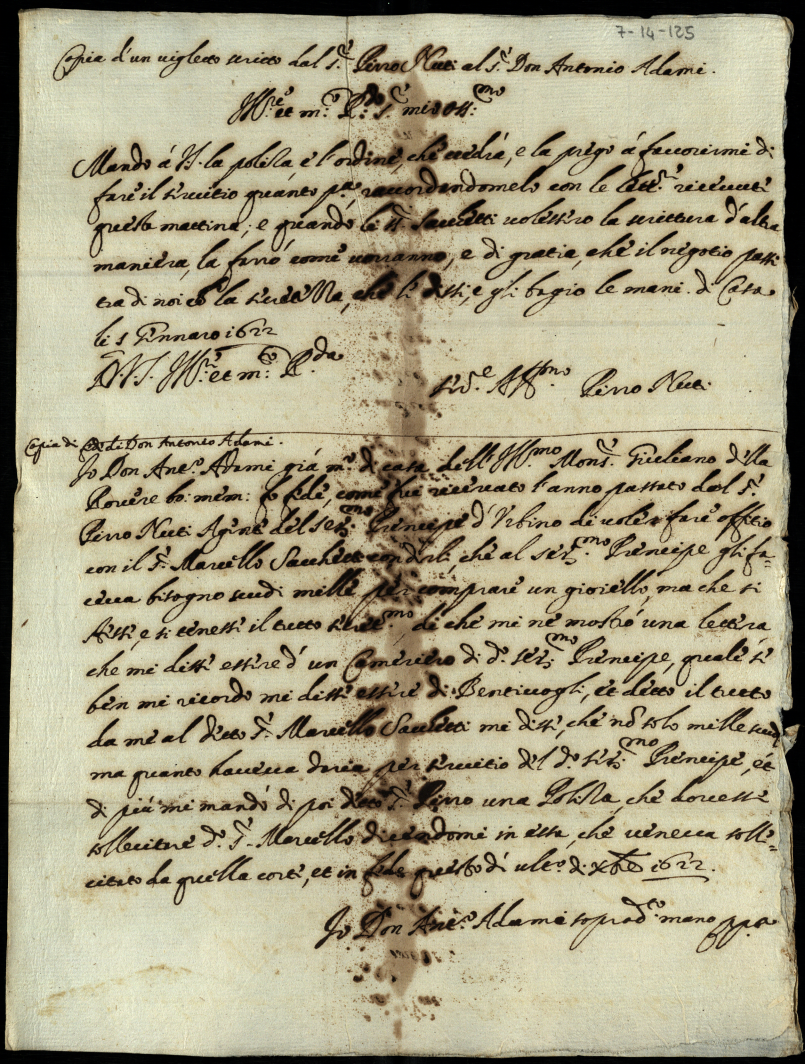 7-14-125
Copia d'un viglietto scritto dal S.r Pirro Nuti al S.r Don Antonio Adami.
Ill.re et m.to R.do S.r mio oss.mo
Mando á VS. la polisa e l'ordine, che vedrá, e la prego á favorirmi di
fare il servitio quanto p.a raccordandomelo con le lett.re ricevute
questa mattina; e quando li SS.ri Sacchetti volessero la scrittura d'altra
maniera, la faró come vorranno, e di gratia, che il negotio passi
tra di noi cõ la secretezza, che li dissi, e gli bagio le mani. di Casa
li 5 Gennaro 1622
D. V.S. Ill.re et m.to R.da
Ser.re Aff.mo Pirro Nuti
Copia di fede di Don Antonio Adami.
Io Don Ant.o Adami giá m.ro di casa dell'Ill.mo Mons.r Giuliano della
Rovere bo: mem: fo fede, come fui ricercato l'anno passato dal S.r
Pirro Nuti Agente del Ser.mo Prencipe d'Urbino di voler fare offitio
con il S.r Marcello Sacchetti con dirli, che al Ser.mo Prencipe gli fa=
ceva bisogno scudi mille per comprare un gioiello, ma che si
desse, e si tenesse il tutto secret.mo, di che mi ne mostró una lettera
che mi disse essere d'un Cameriero di d.o Ser.mo Prencipe, quale se
ben mi ricordo mi disse essere di Bentivogli, et detto il tutto
da me al detto S.r Marcello Sacchetti mi disse, che nõ solo mille scudi
ma quanto haveva daria per servitio del d.o Ser.mo Prencipe, et
di piú mi mandó di poi detto S.r Pirro una Polisa, che dovesse
sollecitare d.o S.r Marcello dicendomi in essa, che veneva solle=
citato da quella corte, et in fede questo dí ult.o di Xbre 1622.
Io Don Ant.o Adami soprad.to mano ppa